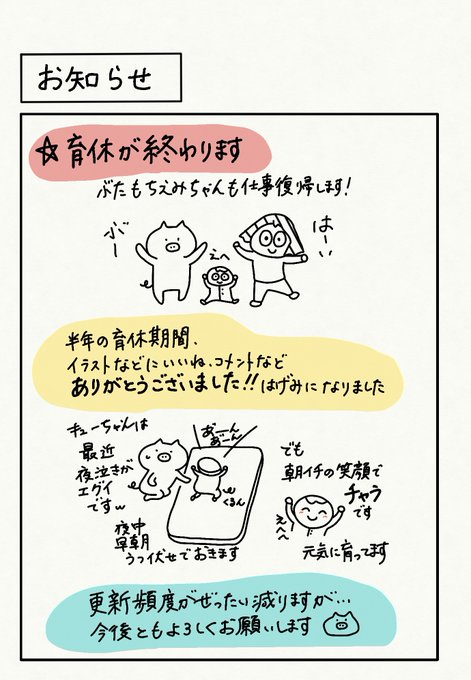 お知らせ
☆育休が終わります
ぶたもちえみちゃんも仕事復帰します!
ぶー
えへ
はーい
半年の育休期間、
イラストなどにいいね、コメントなど
ありがとうございました!! はげみになりました
キューちゃんは
最近
夜泣きが
エグイ
ですw
あーん
あーん
くるん
夜中
早朝
うつ伏せでおきます
でも
朝イチの笑顔で
チャラ
です
えへへ
元気に育ってます
更新頻度がぜったい減りますが…
今後ともよろしくお願いします